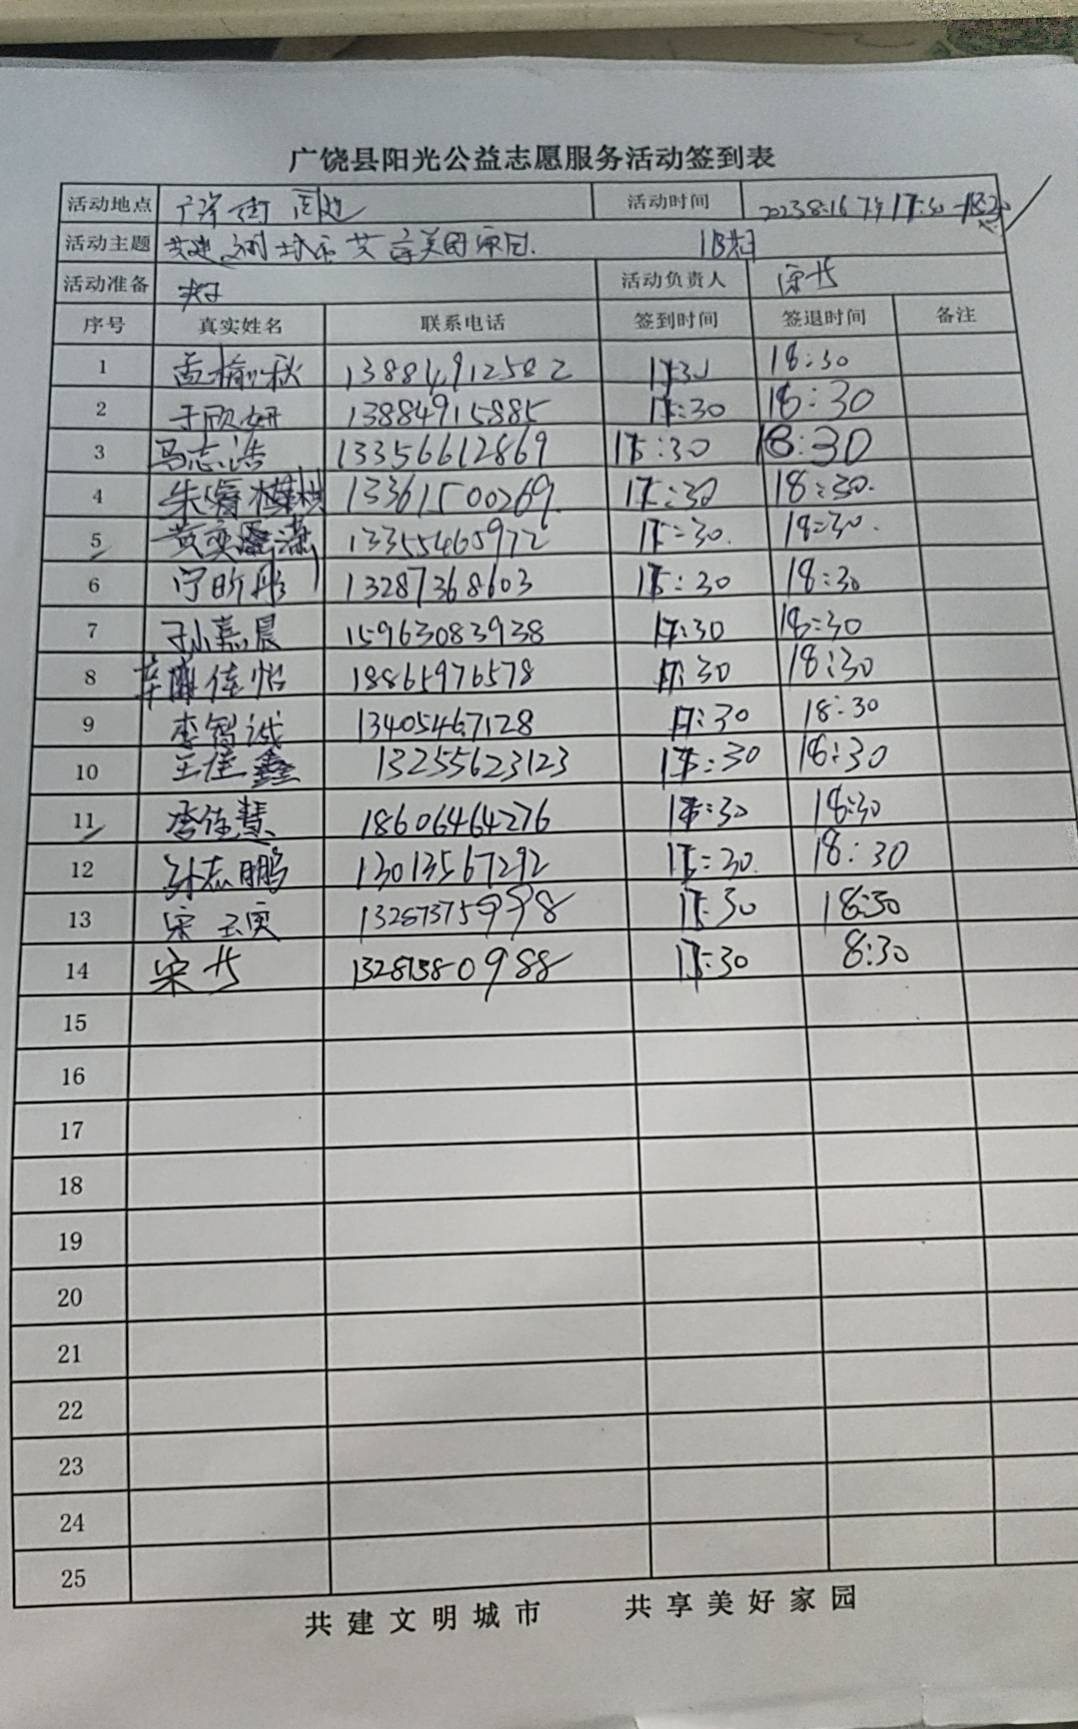 广饶县阳光公益志愿服务活动签到表
活动地点 街周边 活动时间 2023.8.16 下午17:30-18:30
活动主题 共建文明城市 共享美好家园
活动准备 活动负责人 宋书
序号 真实姓名 联系电话 签到时间 签退时间 备注
1 孟榆秋 13884912582 17:30 18:30
2 于欣妍 13884915885 17:30 18:30
3 马志浩 13356612869 17:30 18:30
4 朱睿 13361500269 17:30 18:30
5 黄奕潇 13355465972 17:30 18:30
6 宁昕彤 13287368603 17:30 18:30
7 孙嘉晨 15963083938 17:30 18:30
8 辛佳怡 18865976578 17:30 18:30
9 李智诚 13405467128 17:30 18:30
10 王佳鑫 13255623123 17:30 18:30
11 李佳慧 18606464276 17:30 18:30
12 孙志鹏 13013567292 17:30 18:30
13 宋玉寅 13287375998 17:30 18:30
14 宋书 13281580988 17:30 8:30
15
16
17
18
19
20
21
22
23
24
25
共建文明城市 共享美好家园